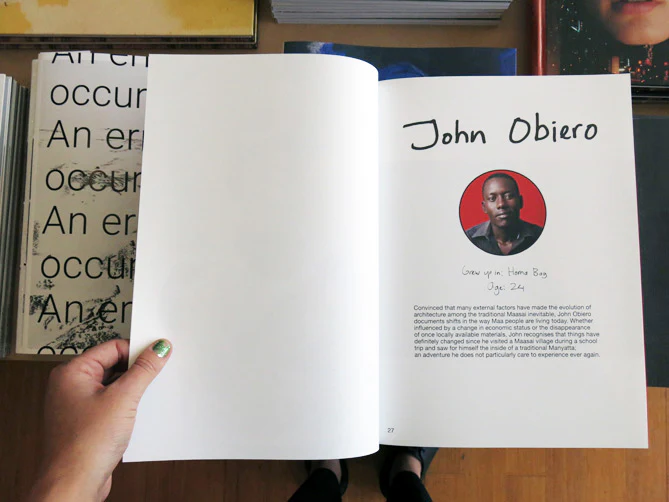 An err
occur
An err
occur
An er
occur
An er
occur
John Obiero
Grew up in: Homa Bay
Age: 24
Convinced that many external factors have made the evolution of
architecture among the traditional Maasai inevitable, John Obiero
documents shifts in the way Maa people are living today. Whether
influenced by a change in economic status or the disappearance
of once locally available materials, John recognises that things have
definitely changed since he visited a Maasai village during a school
trip and saw for himself the inside of a traditional Manyatta;
an adventure he does not particularly care to experience ever again.
27